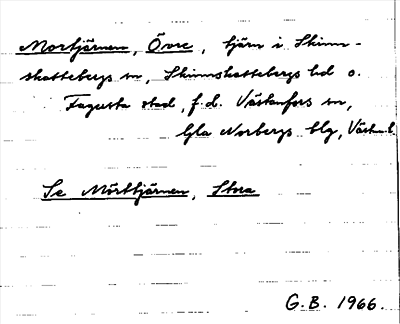 Mortjärnen, Övre, tjärn i Skinn-
skattebergs sn, Skinnskattebergs hd o.
Fagersta stad, f.d. Västanfors sn,
Gla Norbergs blg, Västm.l.
Se Mörttjärnen, Stora
G.B. 1966.